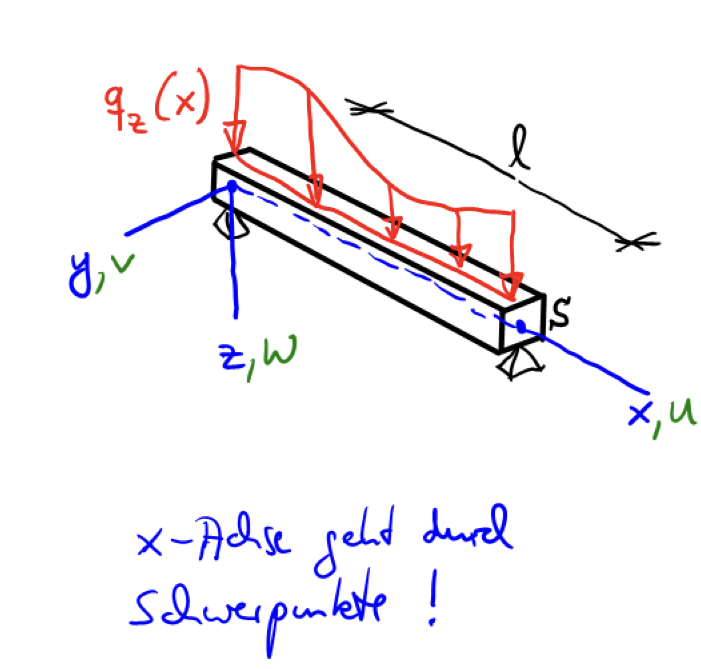 q_z(x)
l
y,v
S
z,w
x,u
x-Achse geht durch
Schwerpunkte !